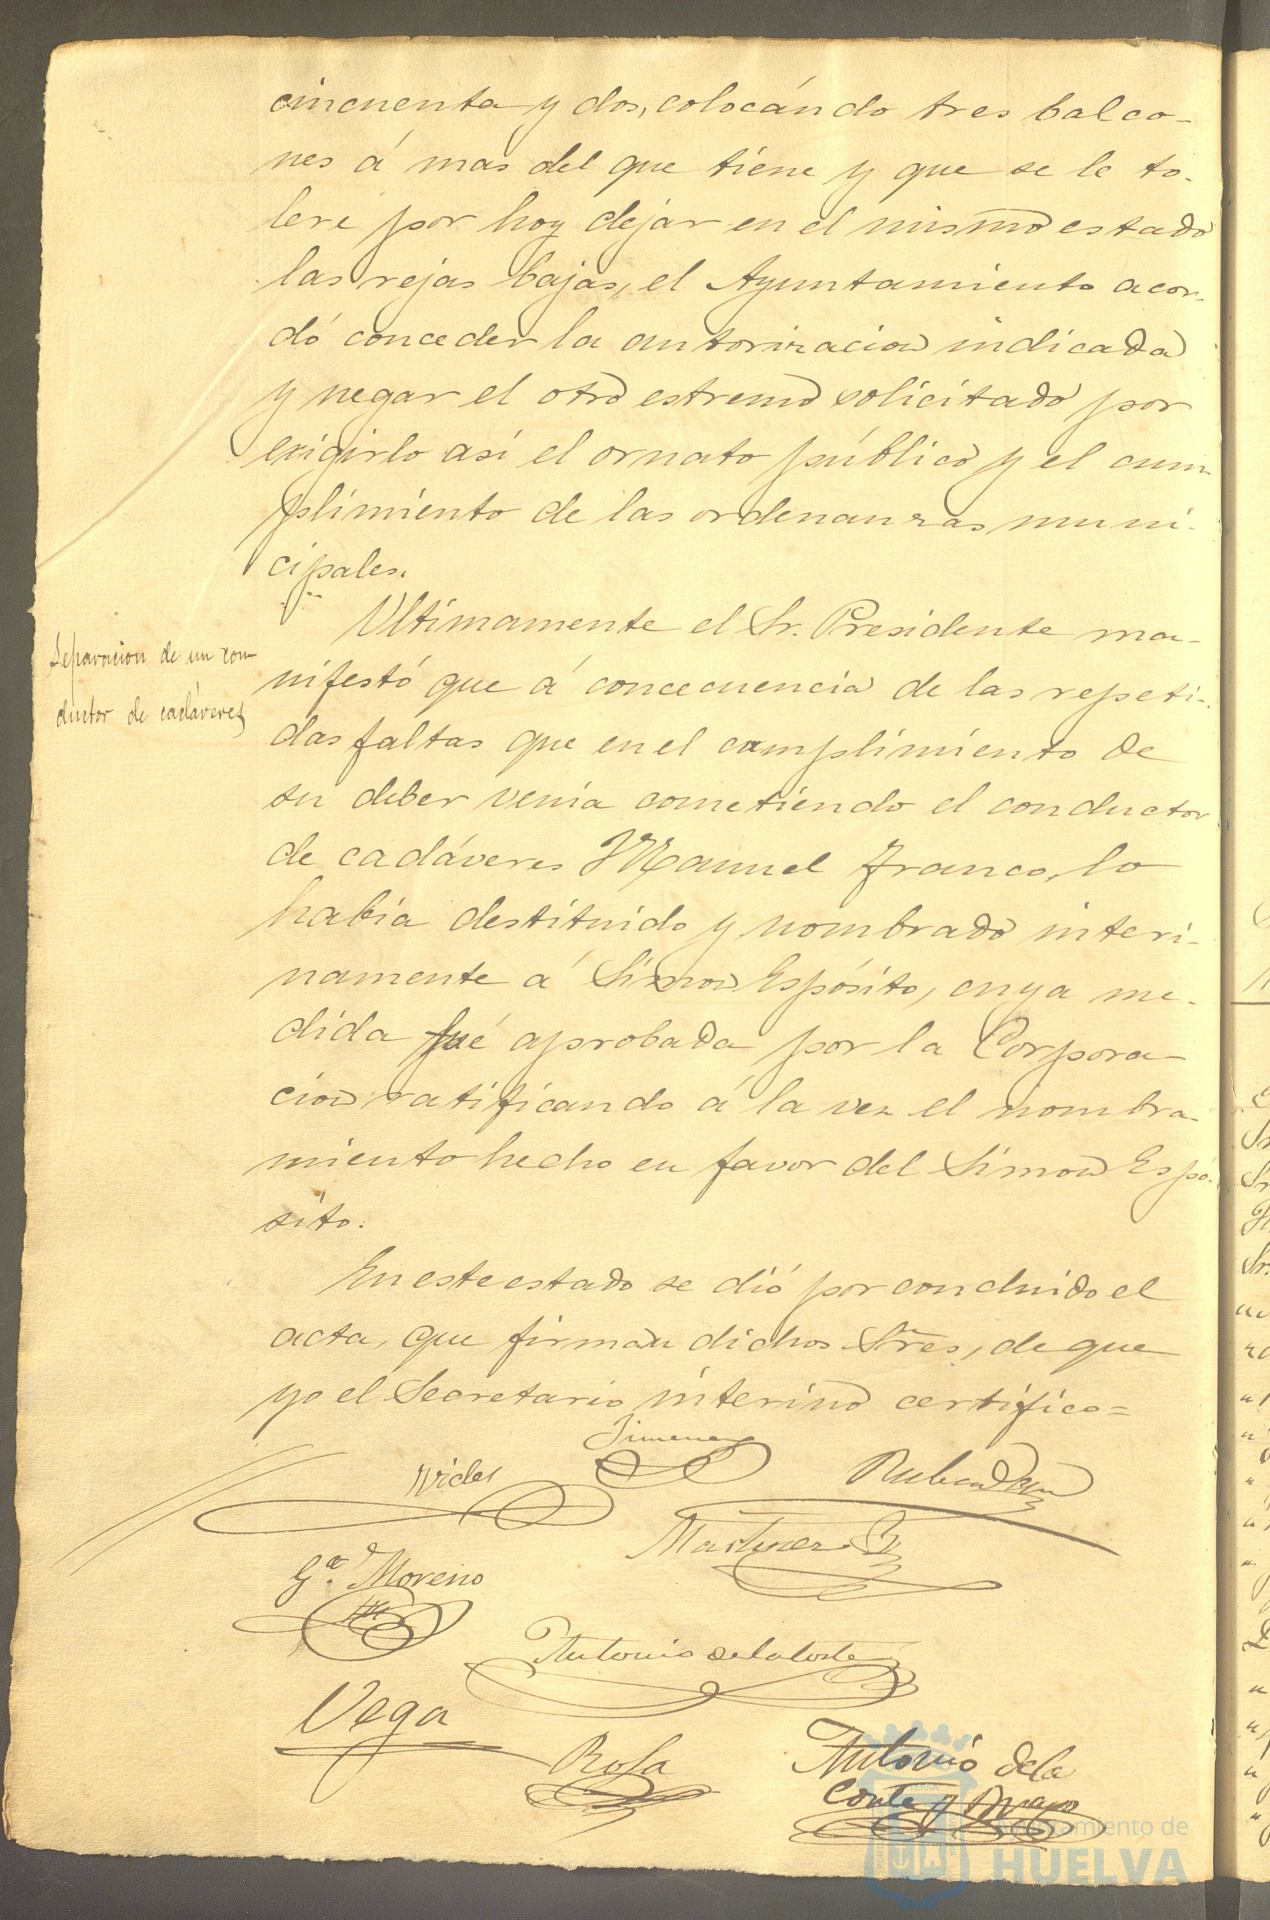 cincuenta y dos, colocándo tres balco-
nes á mas del que tiene y que se le to-
lere por hoy dejar en el mismo estado
las rejas bajas, el Ayuntamiento acor-
dó conceder la autorizacion indicada
y negar el otro estremo solicitado por
exigirlo así el ornato público y el cum-
plimiento de las ordenanzas muni-
cipales.
Ultimamente el Sr. Presidente ma-
Separacion de un con-
ductor de cadáveres
nifestó que á concecuencia de las repeti-
das faltas que en el cumplimiento de
su deber venia cometiendo el conductor
de cadáveres Manuel Franco, lo
había destituido y nombrado interi-
namente á Simon Espósito, cuya me-
dida fué aprobada por la Corpora-
cion ratificando á la vez el nombra-
miento hecho en favor del Simon Espó-
sito.
En este estado se dió por concluido el
acta, que firman dichos Sres, de que
yo el Secretario interino certifico=
Jimenez
Vides
Martinez
Ga. Moreno
Antonio de la Corte
Vega
Rosa
Antonio de la
Corte y
Ayuntamiento de
HUELVA